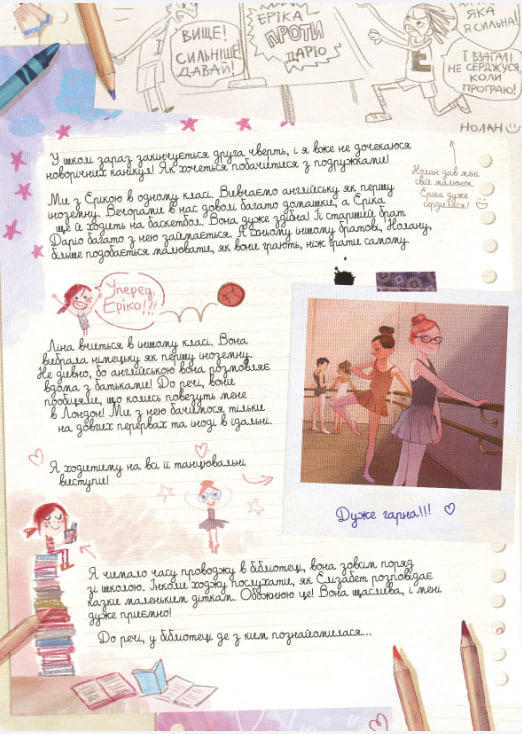 ВИЩЕ!
СИЛЬНІШЕ,
ДАВАЙ!
ЕРІКА
ПРОТИ
ДАРІО
ЯКА
Я СИЛЬНА!
І ВЗАГАЛІ
НЕ СЕРДЖУСЯ,
КОЛИ
ПРОГРАЮ!
Е
НОЛАН
Нолан дав мені
свій малюнок.
Еріка дуже
сердилася!
У школі зараз закінчується друга чверть, і я вже не дочекаюся
новорічних канікул! Як хочеться побачитися з подружками!
Ми з Ерікою в одному класі. Вивчаємо англійську як першу
іноземну. Вечорами в нас доволі багато домашки, а Еріка
ще й ходить на баскетбол. Вона дуже здібна! Її старший брат
Даріо багато з нею займається. А їхньому іншому братові, Нолану,
більше подобається малювати, як вони грають, ніж грати самому.
Уперед,
Еріко!!!
Ліна вчиться в іншому класі. Вона
вибрала німецьку як першу іноземну.
Не дивно, бо англійською вона розмовляє
вдома з батьками! До речі, вони
пообіцяли, що колись повезуть мене
в Лондон! Ми з нею бачимося тільки
на довгих перервах та іноді в їдальні.
Я ходитиму на всі її танцювальні
виступи!
Дуже гарна!!!
Я чимало часу проводжу в бібліотеці, вона зовсім поряд
зі школою. Інколи ходжу послухати, як Елізабет розповідає
казки маленьким діткам. Обожнюю це! Вона щаслива, і мені
дуже приємно!
До речі, у бібліотеці де з ким познайомилася...